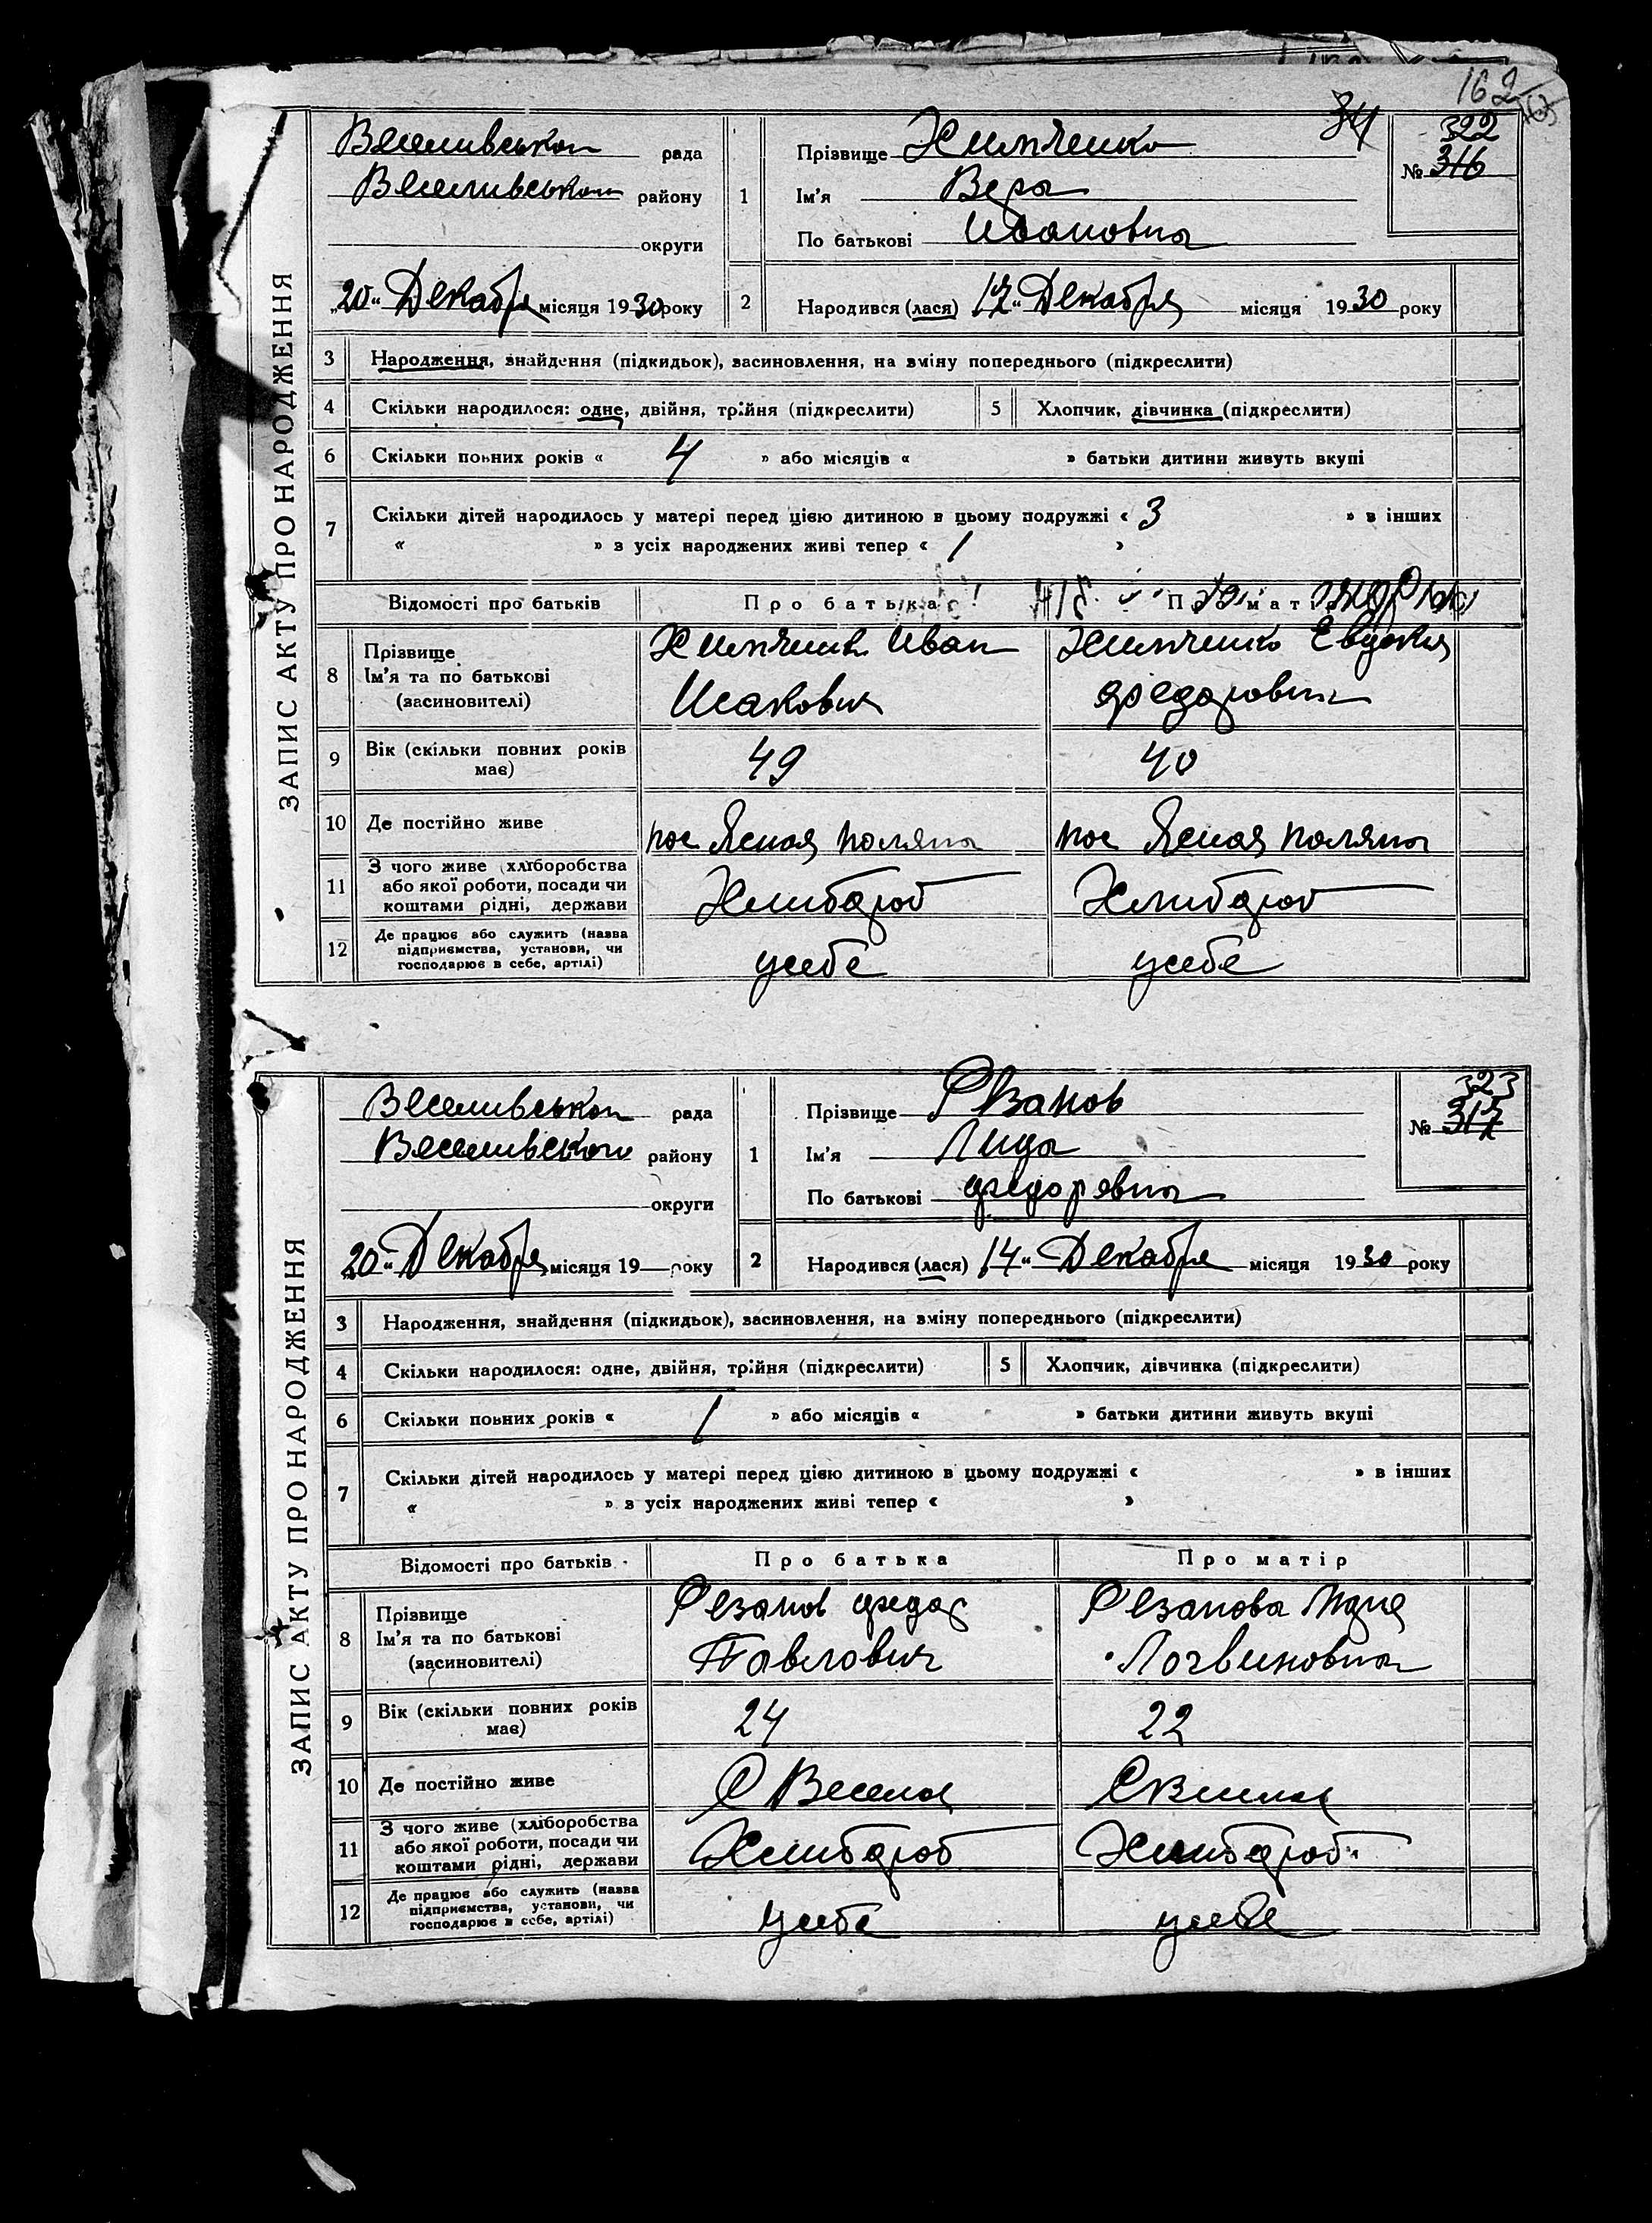 162
34
ЗАПИС АКТУ ПРО НАРОДЖЕННЯ
Веселивськои рада
Веселивськои району
округи
„20“ Декабря місяця 1930 року
1 Прізвище Химченко
Ім'я Вера
По батькові Ивановна
322
№ 316
2 Народився (лася) 17“ Декабря місяця 1930 року
3 Народження, знайдення (підкидьок), засиновлення, на зміну попереднього (підкреслити)
4 Скільки народилося: одне, двійня, трійня (підкреслити) 5 Хлопчик, дівчинка (підкреслити)
6 Скільки повних років « 4 » або місяців « » батьки дитини живуть вкупі
7 Скільки дітей народилось у матері перед цією дитиною в цьому подружжі « 3 » в інших
« » з усіх народжених живі тепер « 1 »
Відомості про батьків Про батька Про матір
8 Прізвище
Ім'я та по батькові
(засиновителі)
Химченко Иван
Исакович
Химченко Евдокия
Федоровна
9 Вік (скільки повних років
має)
49 40
10 Де постійно живе пос Ясная поляна пос Ясная поляна
11 З чого живе (хліборобства
або якої роботи, посади чи
коштами рідні, держави
Хлибороб Хлибороб
12 Де працює або служить (назва
підприємства, установи, чи
господарює в себе, артілі)
усебе усебе
ЗАПИС АКТУ ПРО НАРОДЖЕННЯ
Веселивськои рада
Веселивскои району
округи
„20“ Декабря місяця 19 року
1 Прізвище Резанов
Ім'я Лида
По батькові Федоровна
323
№ 317
2 Народився (лася) 14“ Декабря місяця 1930 року
3 Народження, знайдення (підкидьок), засиновлення, на зміну попереднього (підкреслити)
4 Скільки народилося: одне, двійня, трійня (підкреслити) 5 Хлопчик, дівчинка (підкреслити)
6 Скільки повних років « 1 » або місяців « » батьки дитини живуть вкупі
7 Скільки дітей народилось у матері перед цією дитиною в цьому подружжі « » в інших
« » з усіх народжених живі тепер « »
Відомості про батьків Про батька Про матір
8 Прізвище
Ім'я та по батькові
(засиновителі)
Резанов Федор
Павлович
Резанова
Логвиновна
9 Вік (скільки повних років
має)
24 22
10 Де постійно живе С Веселое С Веселое
11 З чого живе (хліборобства
або якої роботи, посади чи
коштами рідні, держави
Хлибороб Хлибороб
12 Де працює або служить (назва
підприємства, установи, чи
господарює в себе, артілі)
усебе усебе